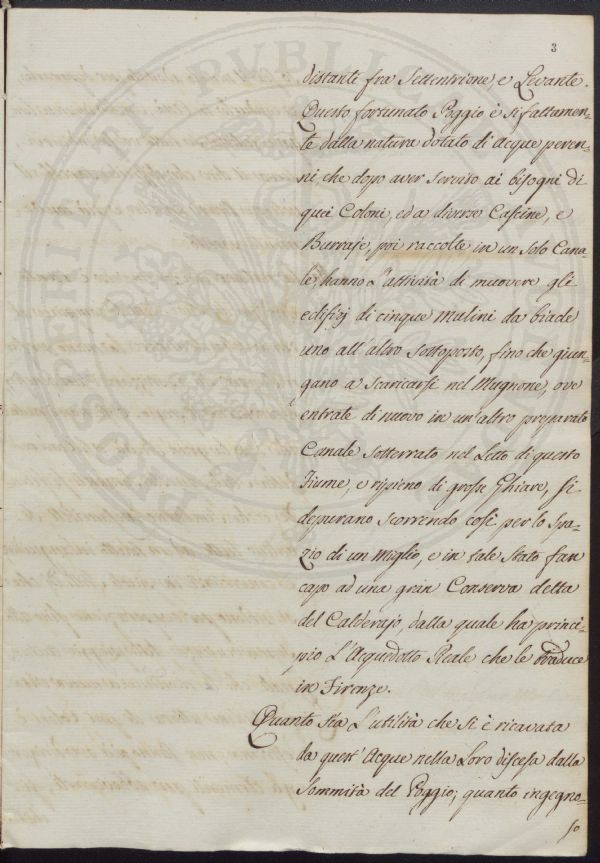 3
distanti fra Settentrione e Levante.
Questo fortunato Poggio è sì fattamen-
te dalla natura dotato di Acque peren-
ni, che dopo aver servito ai bisogni di
quei Coloni, ed a diverse Cascine, e
Burraje, poi raccolte in un solo Cana-
le, hanno l'attività di muovere gli
edifizj di cinque Mulini da biade
uno all'altro sottoposto, fino che giun-
gano a scaricarsi nel Mugnone, ove
entrate di nuovo in un'altro preparato
Canale sotterrato nel Letto di questo
Fiume, e ripieno di grosse Ghiare, si
depurano scorrendo così per lo spa-
zio di un miglio, e in tale stato fan
capo ad una gran Conserva detta
del Calderajo, dalla quale ha princi-
pio L'Acquedotto Reale che le traduce
in Firenze.
Quanto sia L'utilità che si è ricavata
da quest'Acque nella Loro discesa dalla
Sommità del Poggio; quanto ingegno-
so
PROSPERI
PVBLIC